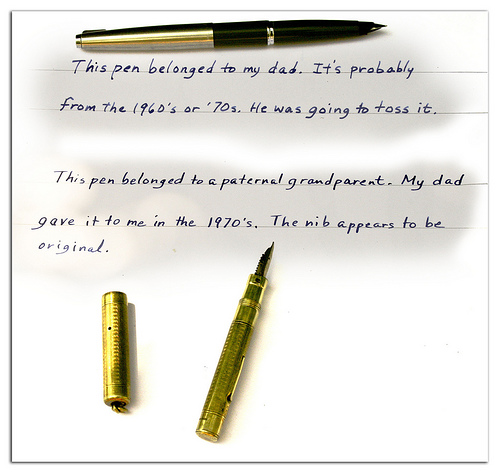 This pen belonged to my dad. It's probably
from the 1960's or '70s. He was going to toss it.
This pen belonged to a paternal grandparent. My dad
gave it to me in the 1970's. The nib appears to be
original.